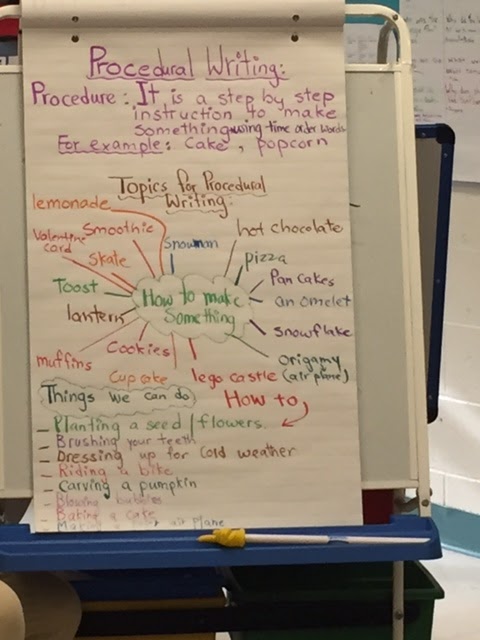 Procedural Writing:
Procedure: It is a step by step
instruction to make
something using time order words
For example: Cake, popcorn
Topics for Procedural
Writing:
lemonade
Smoothie
Snowman
hot chocolate
Valentine
card
Skate
pizza
Toost
Pan cakes
How to make
Something
an omelet
lantern
snowflake
Cookies
muffins
origamy
(air plane)
Cup cake
lego castle
Things we can do
How to
- Planting a seed/flowers.
- Brushing your teeth
- Dressing up for cold weather
- Riding a bike
- Carving a pumpkin
- Blowing bubbles
- Baking a cake
- Making a air plane